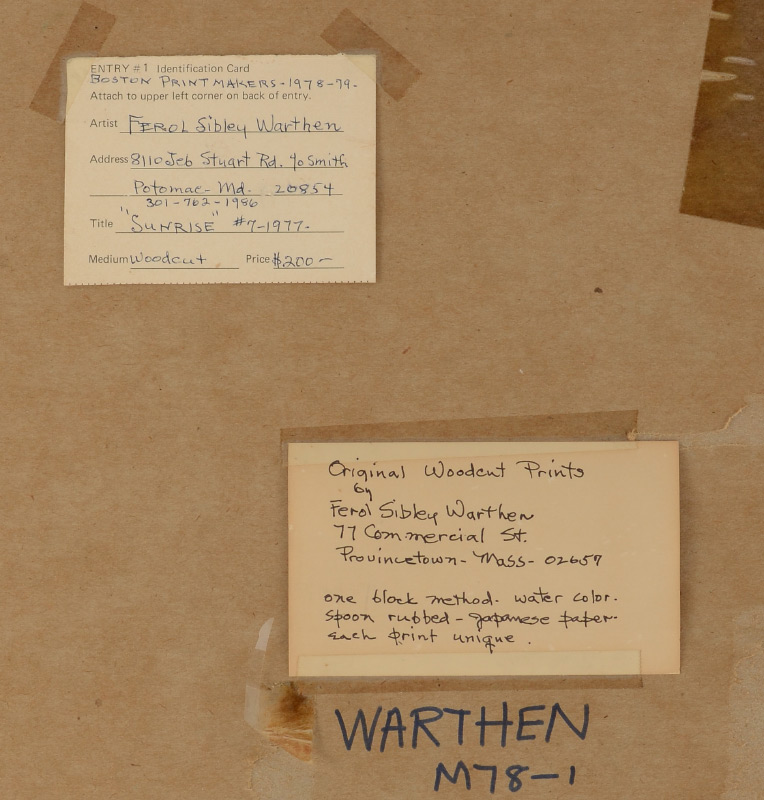 ENTRY #1 Identification Card
BOSTON PRINTMAKERS-1978-79-
Attach to upper left corner on back of entry.
Artist FEROL Sibley Warthen
Address 8110 Jeb Stuart Rd. % Smith
Potomac- Md. 20854
301-762-1986
Title "SUNRISE" #7-1977-
Medium Woodcut Price $200-
Original Woodcut Prints
by
Ferol Sibley Warthen
77 Commercial St.
Provincetown- Mass- 02657
one block method. water color.
spoon rubbed - japanese paper-
each print unique.
WARTHEN
M78-1